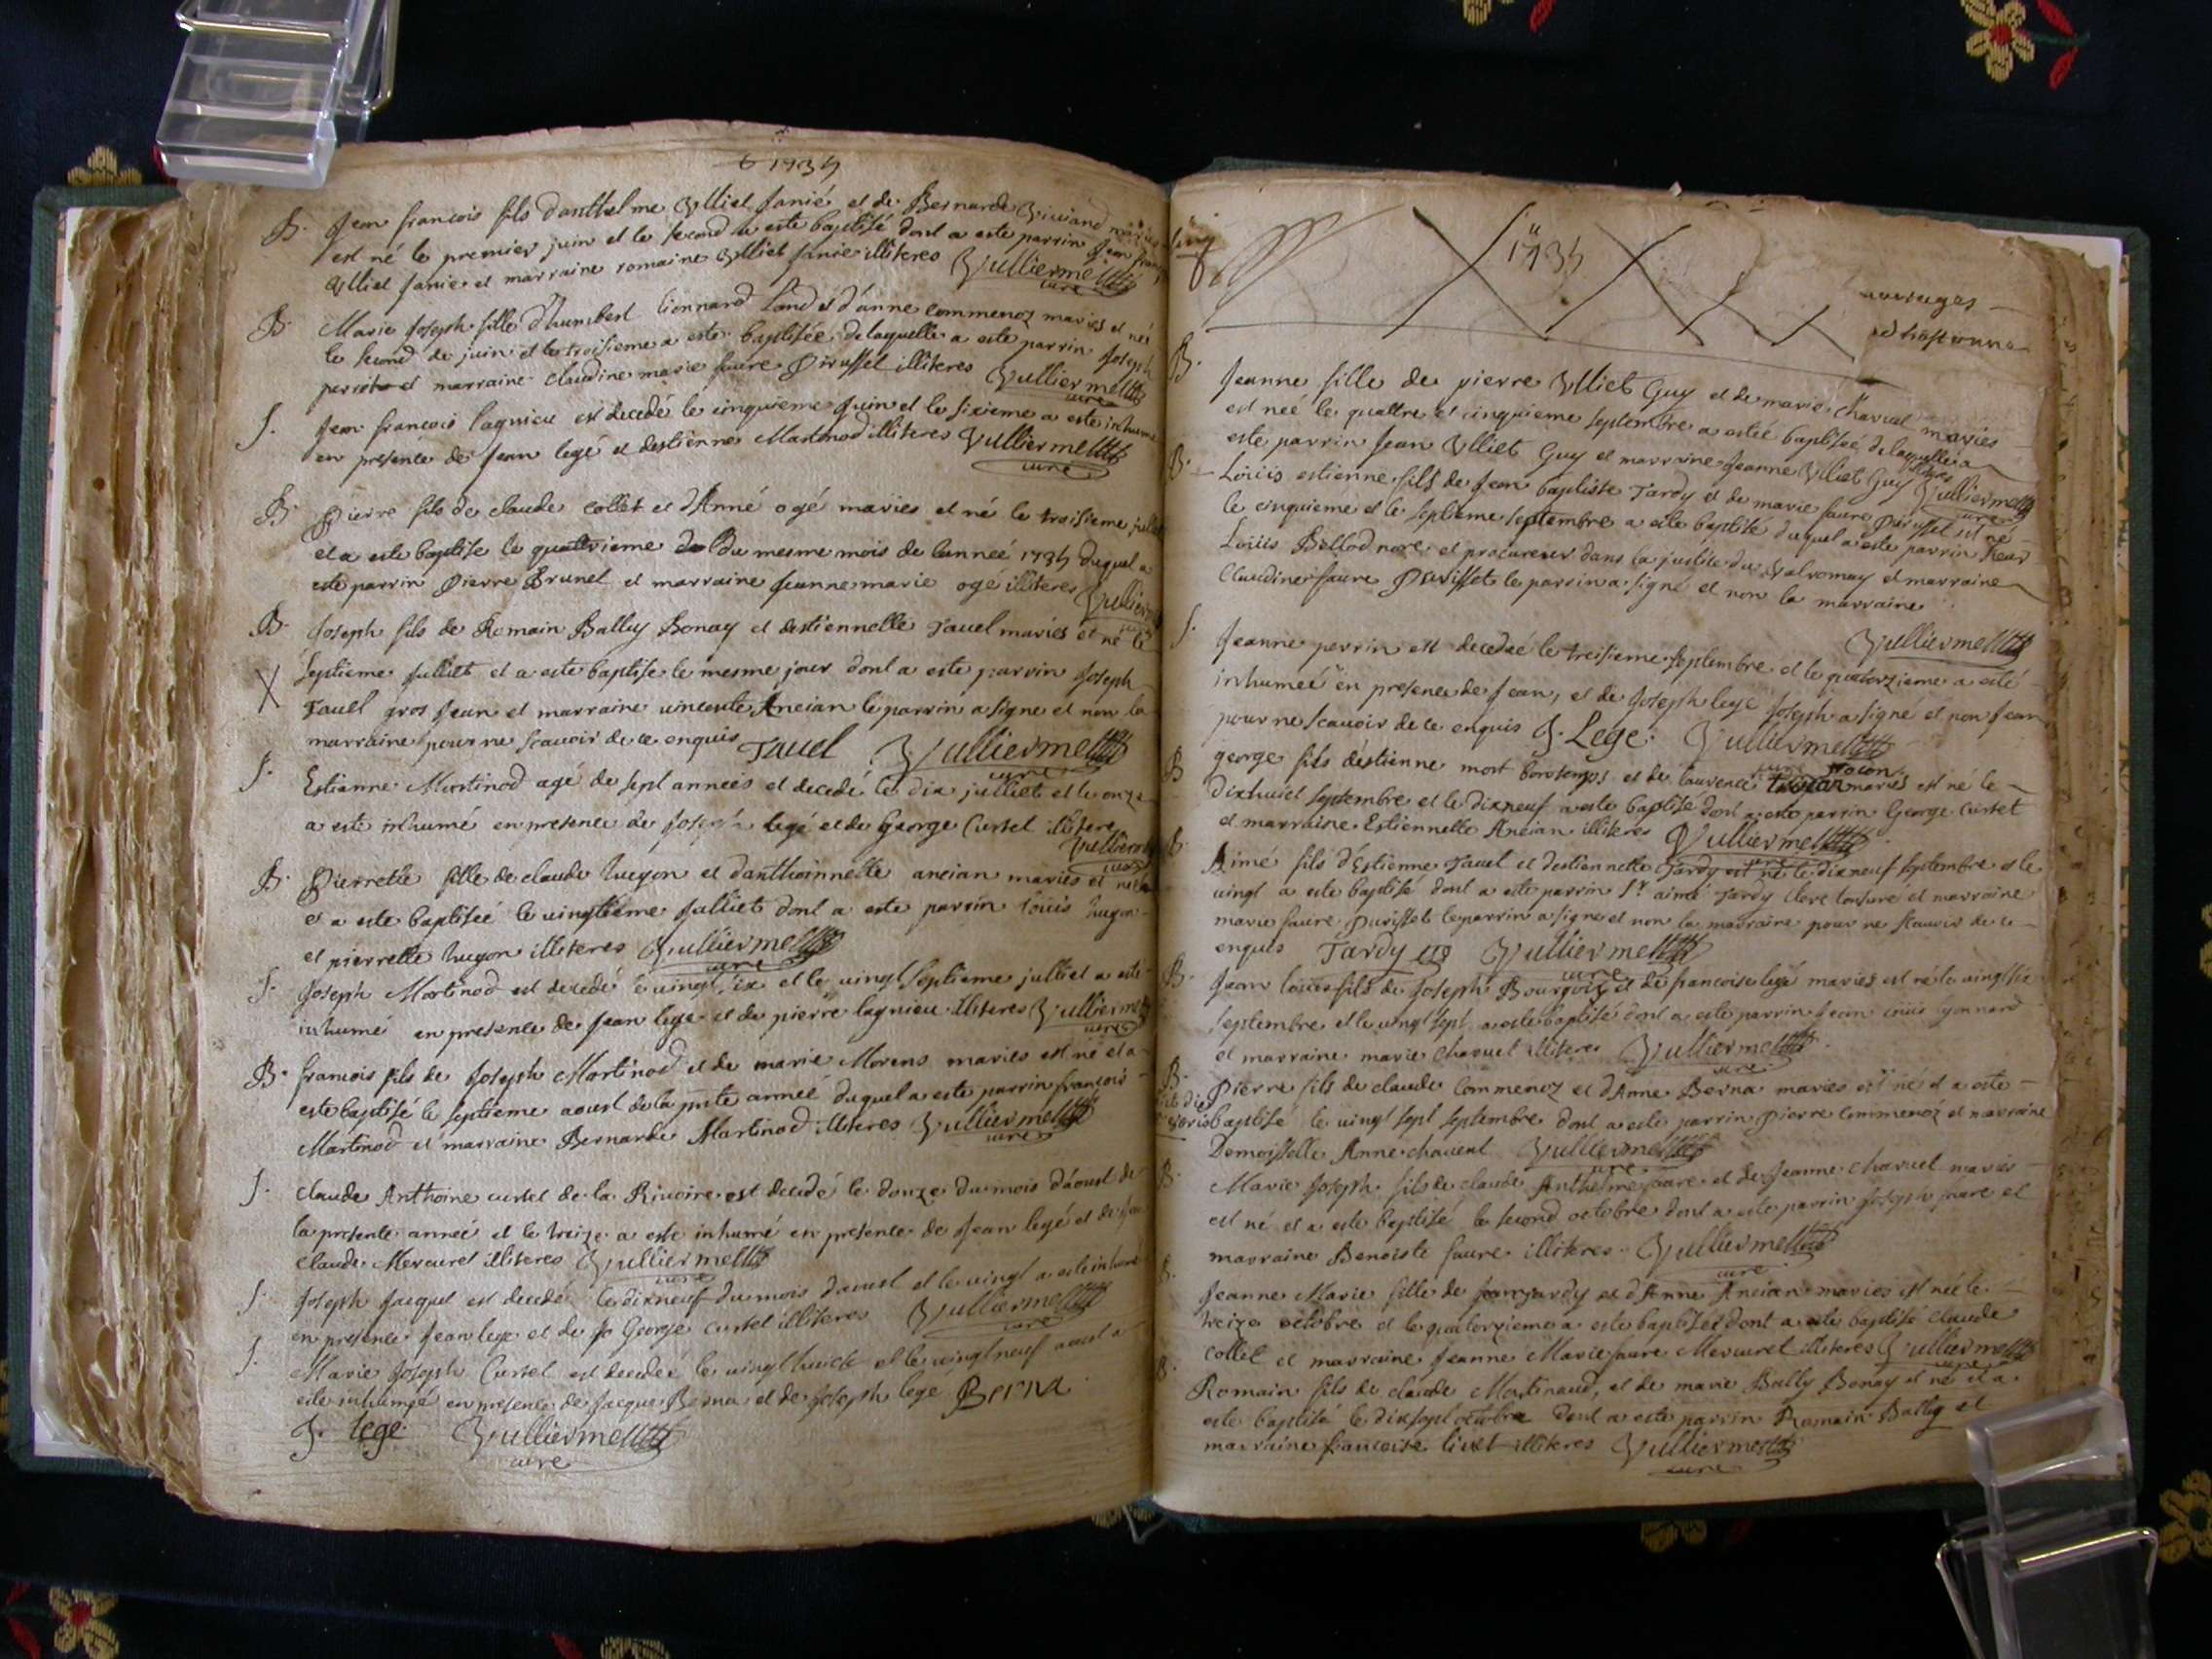 6 1735
B. Jean francois fils danthelme Ulliet Janié et de Bernarde Viviand mariés
est né le premier juin et le second a esté baptisé dont a este parrin Jean
Ulliet Janie et marraine romaine Ulliet Janie illiteres Vulliermet curé
B. Marie Joseph fille d'humbert Lionnard et d'anne Commenoz mariés et née
le second de juin et le troisieme a esté baptisée de laquelle a este parrin Joseph
perret et marraine claudine marie faure Durusset illiteres Vulliermet curé
S. Jean francois lagnieu est decedé le cinquieme Juin et le sixieme a este inhumé
en presence de Jean legé et destienne Martinod illiteres Vulliermet curé
B. Pierre fils de claude Collet et d'Anne ogé mariés et né le troisieme
et a este baptise le quatrieme du mesme mois de lanneé 1735 duquel a
este parrin Pierre Brunet et marraine Jeanne marie ogé illiteres Vulliermet
B. Joseph fils de Romain Bally Bonay et destiennette Tavel mariés et né le
X Septieme Julliet et a este baptise le mesme jour dont a este parrin Joseph
Tavel gros Jean et marraine vincente Ancian le parrin a signe et non la
marraine pour ne scavoir de ce enquis Tavel Vulliermet curé
S. Estienne Martinod agé de sept anneés et decedé le dix julliet et le onze
a este inhumé en presence de Joseph legé et de George Curtet illitere
Vulliermet curé
B. Pierrette fille de claude hugon et danthoinnette ancian mariés et née
et a este baptiseé le vingtieme Julliet dont a este parrin Loüis hugon
et pierrette hugon illiteres Vulliermet curé
S. Joseph Martinod est decedé le vingt six et le vingt Septieme julliet a este
inhumé en presence de Jean lege et de pierre lagnieu illiteres Vulliermet curé
B. francois fils de Joseph Martinod et de marie Morens mariés est né et a
este baptisé le septieme aoust de la pnte annee duquel a este parrin francois
Martinod et marraine Bernarde Martinod illiteres Vulliermet curé
S. claude Anthoine curtet de la Rivoire est decedé le douze du mois d'aoust de
la presente anneé et le treize a este inhumé en presence de Jean legé et de
claude Mercuret illiteres Vulliermet curé
S. Joseph Jacquet est decedé le dixneuf du mois daoust et le vingt a este inhumé
en presence Jean lege et de George curtet illiteres Vulliermet curé
S. Marie Joseph Curtet est decedeé le vingt huict et le vingt neuf aoust a
este inhumeé en presence de Jacque Berna et de Joseph lege Berna
J. lege Vulliermet
curé
1735
B. Jeanne fille de pierre Ulliet Guy et de marie Charvet mariés
est neé le quattre et cinquieme septembre a esteé baptiseé de laquelle a
este parrin Jean Ulliet Guy et marraine Jeanne Ulliet Guy Vulliermet curé
B. Loüis estienne fils de Jean baptiste Tardy et de marie faure Durusset et né
le cinquieme et le septieme septembre a este baptise duquel a este parrin
Loüis Bellod nore et procureur dans la justice du Valromay et marraine
Claudine faure Durisset le parrin a signé et non la marraine
Vulliermet
S. Jeanne perrin est decedeé le treisieme septembre et le quatorzieme a esté
inhumeé en presence de Jean, et de Joseph lege Joseph a signé et non Jean
pour ne scavoir de ce enquis J. Lege. Vulliermet curé
B george fils destienne mort et de laurence mariés est né le
dixhuict septembre et le dixneuf a este baptise dont a este parrin George Curtet
et marraine Estiennette Ancian illiteres Vulliermet curé
B. Aimé fils d'Estienne Tavel et destiennette Tardy est né le dixneuf septembre et le
vingt a este baptisé dont a este parrin Sr aimé Tardy clerc tonsuré et marraine
marie faure Durisset le parrin a signe et non la marraine pour ne scavoir de ce
enquis Tardy Vulliermet curé
B. Jean loüis fils de Joseph Bourgois et de francoise legé mariés est né le vingt six
septembre et le vingt sept a este baptisé dont a este parrin Jean loüis Lyonnard
et marraine marie charvet illiteres Vulliermet curé
B. Pierre fils de claude Commenoz et dAnne Berna mariés est né et a este
baptisé le vingt sept septembre dont a este parrin Pierre Commenoz et marraine
Demoiselle Anne chavent Vulliermet curé
B. Marie Joseph fils de claude Anthelme faure et de Jeanne charvet mariés
est né et a este baptisé le second octobre dont a este parrin Joseph faure et
marraine Benoiste faure illiteres Vulliermet curé
B. Jeanne Marie fille de Jean Tardy et dAnne Ancian mariés est née le
treize octobre et le quatorzieme a este baptisée dont a este baptisé claude
Collet et marraine Jeanne Marie faure Mercuret illiteres Vulliermet curé
B. Romain fils de claude Martinaud, et de marie Bally Bonay et né et a
este baptisé le dixsept octobre dont a este parrin Romain Bally et
marraine francoise livet illiteres Vulliermet
curé